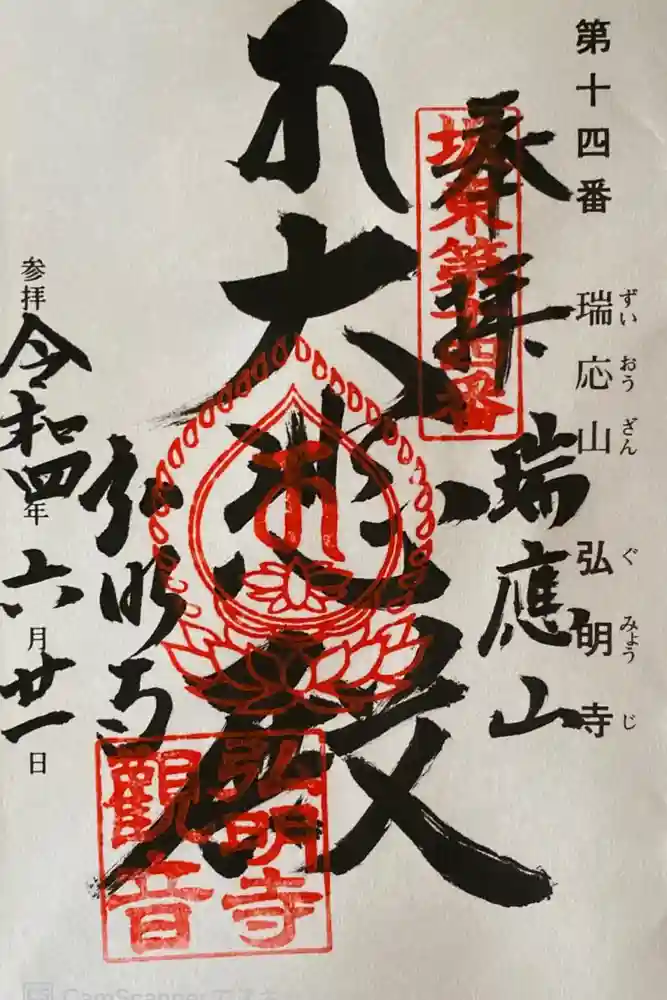 第十四番 瑞応山 弘明寺
ずい おう ざん ぐ みょう じ
奉拝
瑞應山
坂東第十四番
大悲殿
弘明寺
弘明寺
観音
参拝 令和四年 六月廿一日
CamScanner